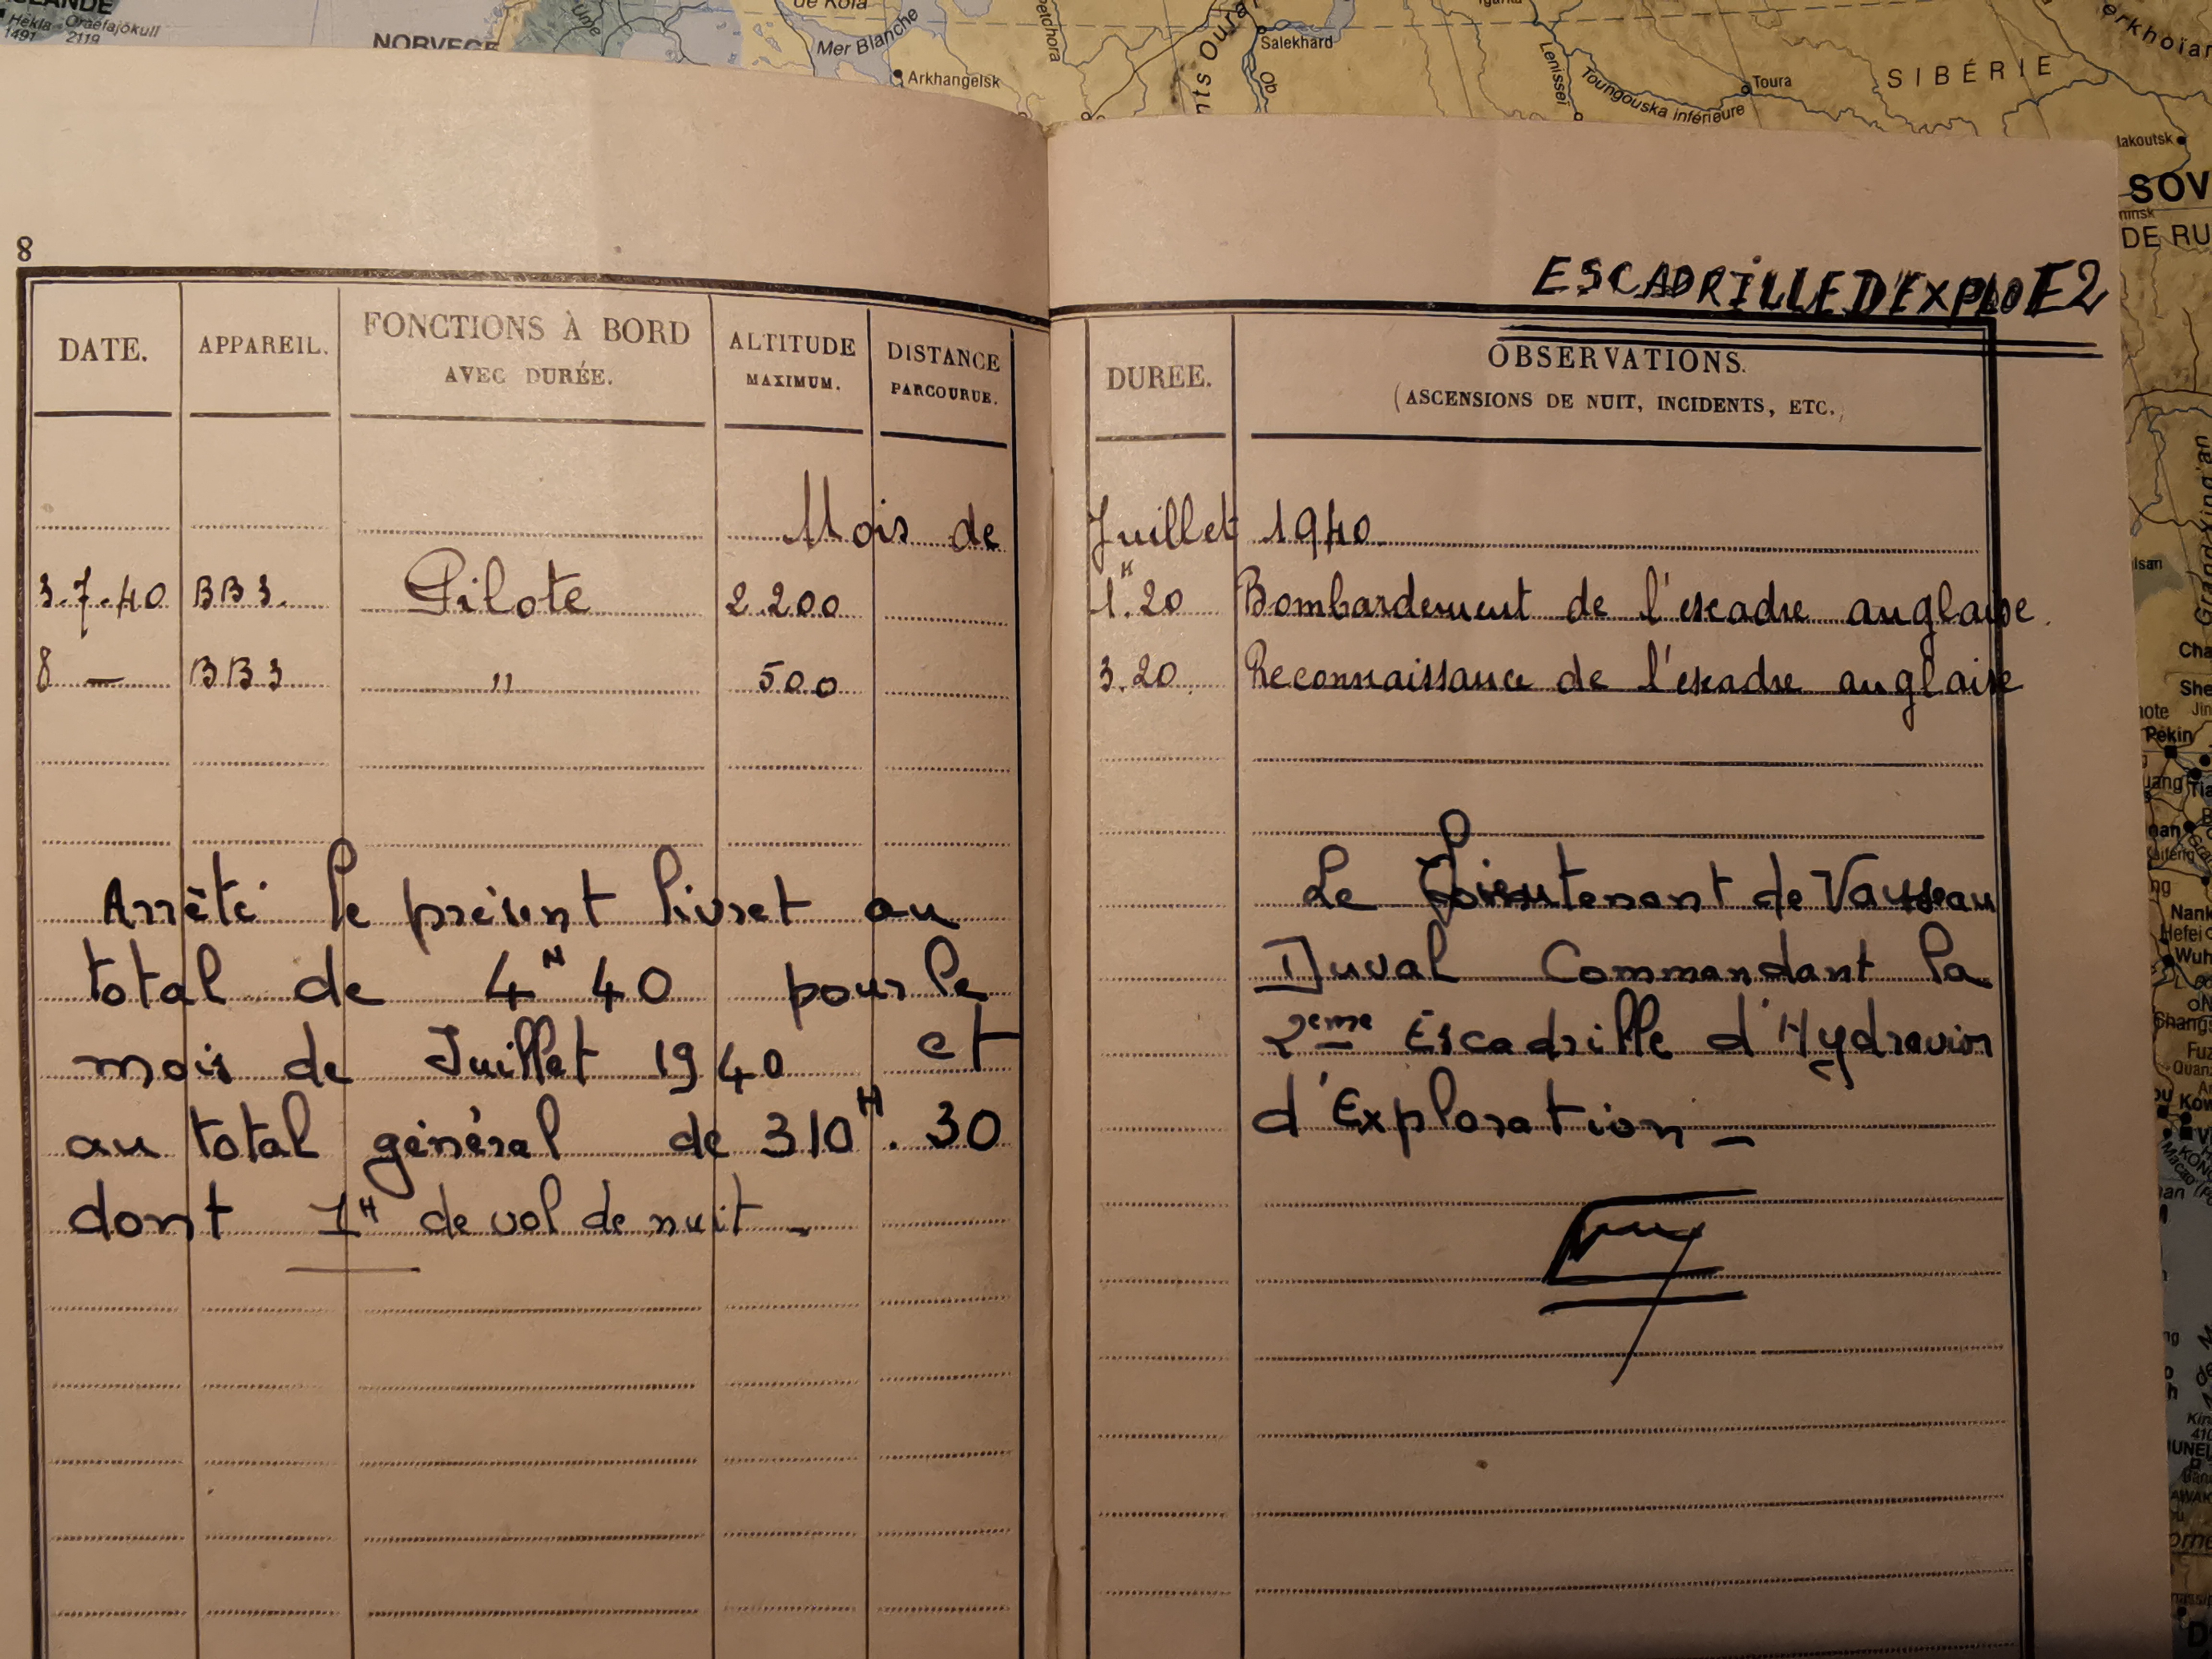 LANDE
Hekla
1491
Oraefajökull
2119
NORVEGE
Ume
de Kola
Mer Blanche
Arkhangelsk
Petchora
nts Oural
Salekhard
Ob
Igarka
Ienissei
Toungouska inférieure
Toura
SIBÉRIE
erkhoïan
Iakoutsk
SOV
DE RU
8
ESCADRILLE D'EXPLO E2
DATE.
APPAREIL.
FONCTIONS À BORD
AVEC DURÉE.
ALTITUDE
MAXIMUM.
DISTANCE
PARCOURUE.
DURÉE.
OBSERVATIONS.
(ASCENSIONS DE NUIT, INCIDENTS, ETC.)
Mois de Juillet 1940
3.7.40 BB3. Pilote 2.200 1.H20 Bombardement de l'escadre anglaise.
8 — BB3 " 500 3.20 Reconnaissance de l'escadre anglaise
Arrêté le présent livret au
total de 4H 40 pour le
mois de Juillet 1940 et
au total général de 310H.30
dont 1H de vol de nuit –
Le Lieutenant de Vaisseau
Duval Commandant la
2ème Escadrille d'Hydravion
d'Exploration –
Grand Xing'an
Pékin
Nank
Hefei
Wuh
Changs
Fuz
Quan
Kow
Macao